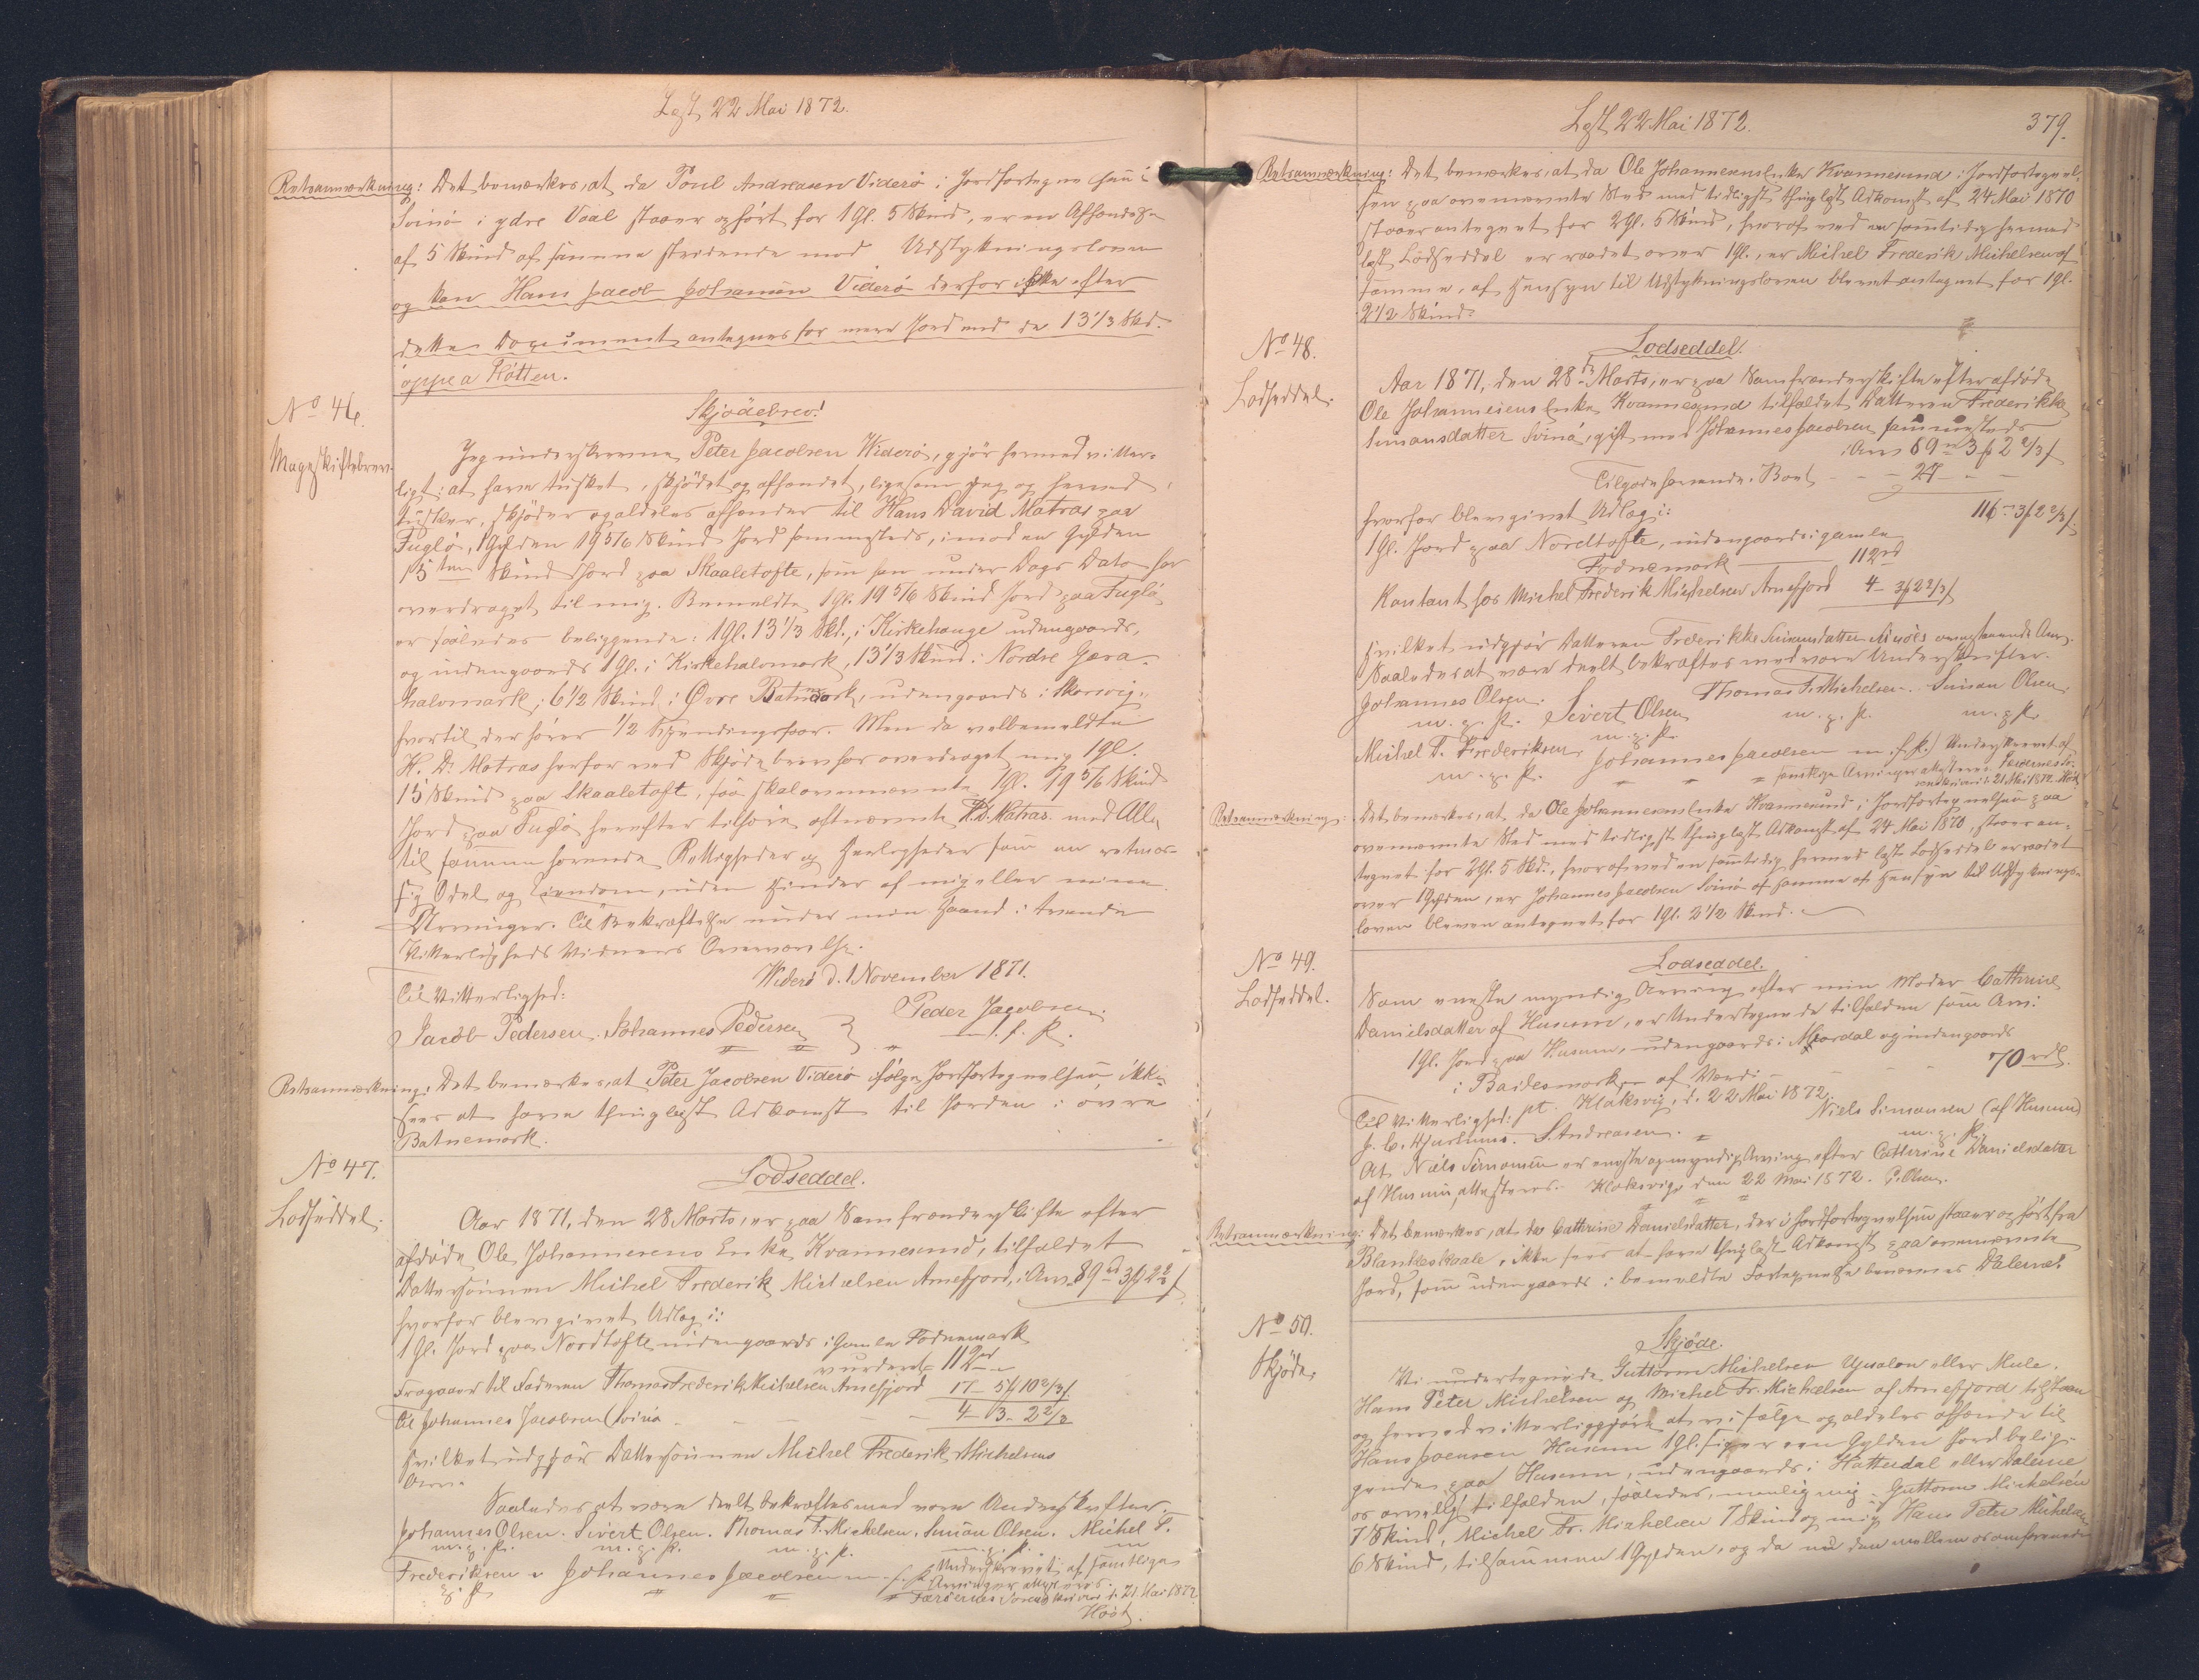 Læst 22 Mai 1872.
Retsanmærkning: Det bemærkes, at da Poul Andreasen Viderø i Jordfortegnelsen i
Svinø i ydre Vaal staaer opført for 1 Gl. 5 Skind, er en Afhændelse
af 5 Skind af samme stridende mod Udstykningsloven
og kan Hans Jacob Johansen Viderø derfor ikke efter
dette Document antegnes for mere Jord end de 13 1/3 Skd.
oppe a Fløtten.
No 46.
Mageskiftebrev.
Skjødebrev!
Jeg underskrevne Peter Jacobsen Widerø, gjør hermed vitter-
ligt: at have tusket, skjødet og afhændet, ligesom jeg og herved
tusker, skjøder og aldeles afhænder til Hans David Matras paa
Fuglø, 1 Gylden 19 5/6 Skind Jord sammesteds, imod en Gylden
15 ten Skind Jord paa Skaaletofte, som han under Dags Dato har
overdraget til mig. Bemeldte 1 Gl. 19 5/6 Skind Jord paa Fuglø
er saaledes beliggende: 1 Gl. 13 1/3 Skd. i Kirkehauge udengaards,
og indengaards 1 Gl. i Kirkehalvmark, 13 1/3 Skind i Nordre Gæra-
halvmark, 6 1/2 Skind i Øvre Batnemark, udengaards i Skorvig,
hvortil der hører 1/2 Hyundingsfoer. Men da velbemeldte
H. D. Matras herfor ved Skjødebrev har overdraget mig 1 Gl.
15 Skind paa Skaaletoft, saa skal ovennævnte 1 Gl. 19 5/6 Skind
Jord paa Fuglø herefter tilhøre oftnævnte H. D. Matras med Alle
til samme hørende Rettigheder og Herligheder som en retmæs-
sig Odel og Eiendom, uden Hinder af mig eller mine
Arvinger. Til Bekræftelse under min Haand i tvende
Vitterligheds Vidners Overværelse.
Widerø d. 1 November 1871.
Til Vitterlighed:
Peder Jacobsen.
Jacob Pedersen. Johannes Pedersen
Retsanmærkning: Det bemærkes, at Peter Jacobsen Viderø ifølge Jordfortegnelsen, ikke
sees at have thinglæst Adkomst til Jorden i øvre
Batnemark.
No 47.
Lodseddel.
Lodseddel.
Aar 1871, den 28 Marts, er paa Samfrændeskifte efter
afdøde Ole Johannesens Enke Kvannesund, tilfaldet
Dattersønnen Michel Frederik Michelsen Arnefjord, i Arv 89 rd 3 ƒ 2 2/3 ſ
hvorfor blev givet Udlæg i:
1 Gl. Jord paa Nordtofte indengaards i Gamle Fodnemark
vurderet 112 rd
Fragaaer til Faderen Thomas Frederik Michelsen Arnefjord 17 - 5 ƒ 10 2/3 ſ
Til Johannes Jacobsen Svinø - - - 4 - 3 - 2 2/3
hvilket udgjør Dattersønnen Michel Frederik Michelsens
Arv.
Saaledes at være deelt bekræftes med vore Underskrifter.
Johannes Olsen. Sivert Olsen. Thomas F. Michelsen. Simon Olsen. Michel F.
m. p. P. m. p. P. m. p. P. m. p. P. m
Frederiksen Johannes Jacobsen m. f. P. Underskrevet af samtlige
p. P. Arvinger attesteres.
Færøernes Sorenskriveri d. 21 Mai 1872
Høst.
Læst 22 Mai 1872.
379.
Retsanmærkning: Det bemærkes, at da Ole Johannesens Enke Kvannesund i Jordfortegnel-
sen paa ovennævnte Sted med tidligst thinglæst Adkomst af 24 Mai 1870
staaer antegnet for 2 Gl. 5 Skind, hvoraf ved en samtidig hermed
læst Lodseddel er raadet over 1 Gl., er Michel Frederik Michelsen af
samme, af Hensyn til Udstykningsloven blevet antegnet for 1 Gl.
2 1/2 Skind.
No 48.
Lodseddel.
Lodseddel.
Aar 1871, den 28 Marts, er paa Samfrændeskifte efter afdøde
Ole Johannesens Enke Kvannesund tilfaldet Datteren Frederikke
Simonsdatter Svinø, gift med Johannes Jacobsen sammesteds
i Arv 89 rd 3 ƒ 2 2/3 ſ
Tilgodehavende i Boet - - 27 - -
hvorfor blev givet Udlæg i: 116 - 3 ƒ 2 2/3 ſ
1 Gl. Jord paa Nordtofte, indengaards i gamle
Fodnemark 112 rd
Kontant hos Michel Frederik Michelsen Arnefjord 4 - 3 ƒ 2 2/3 ſ
hvilket udgjør Datteren Frederikke Simonsdatter Svinøs ovenstaaende Arv.
Saaledes at være deelt bekræftes med vore Underskrifter.
Johannes Olsen. Sivert Olsen Thomas F. Michelsen. Simon Olsen.
m. p. P. m. p. P. m. p. P. m. p. P.
Michel F. Frederiksen. Johannes Jacobsen m. f. P.) Underskrevet af
m. p. P. samtlige Arvinger attesteres. Færøernes So-
renskriveri d. 21 Mai 1872. Høst
Retsanmærkning: Det bemærkes, at da Ole Johannesens Enke Kvannesund, i Jordfortegnelsen paa
ovennævnte Sted med tidligst thinglæst Adkomst af 24 Mai 1870, staaer an-
tegnet for 2 Gl. 5 Skd., hvoraf ved en samtidig hermed læst Lodseddel er raadet
over 1 Gylden, er Johannes Jacobsen Svinø af samme af Hensyn til Udstyknings-
loven bleven antegnet for 1 Gl. 2 1/2 Skind.
No 49.
Lodseddel.
Lodseddel.
Som eneste myndig Arving efter min Moder Cathrine
Danielsdatter af Husum, er Undertegnede tilfalden som Arv:
1 Gl. Jord paa Husum, udengaards i Mordal og indengaards
i Baidesmark, af Værdi - - - 70 rdl.
Til Vitterlighed: pt. Klaksvig, d. 22 Mai 1872.
Niels Simonsen (af Husum)
J. C. Djurhuus. S. Andreasen. m. p. P.
At Niels Simonsen er eneste og myndig Arving efter Cathrine Danielsdatter
af Husum, attesteres. Klaksvig, den 22 Mai 1872. P. Olsen.
Retsanmærkning: Det bemærkes, at da Cathrine Danielsdatter, der i Jordfortegnelsen staaer opført fra
Blankeskaale, ikke sees at have thinglæst Adkomst paa ovennævnte
Jord, som udengaards i bemeldte Fortegnelse benævnes Dalerne!
No 50.
Skjøde.
Skjøde.
Vi undertegnede Guttorm Michelsen Upsalon eller Mule,
Hans Peter Michelsen og Michel Fr. Michelsen af Arnefjord tilstaae
og hermed vitterliggjøre at vi sælge og aldeles afhænde til
Hans Joensen Husum 1 Gl. siger een Gylden Jord belig-
gende paa Husum, udengaards i Hatterdal eller Dalerne
os arveligt tilfalden, saaledes, nemlig mig Guttorm Michelsen
7 Skind, Michel Fr. Michelsen 7 Skind og mig Hans Peter Michelsen
6 Skind, tilsammen 1 Gylden, og da nu den mellem os omforenede